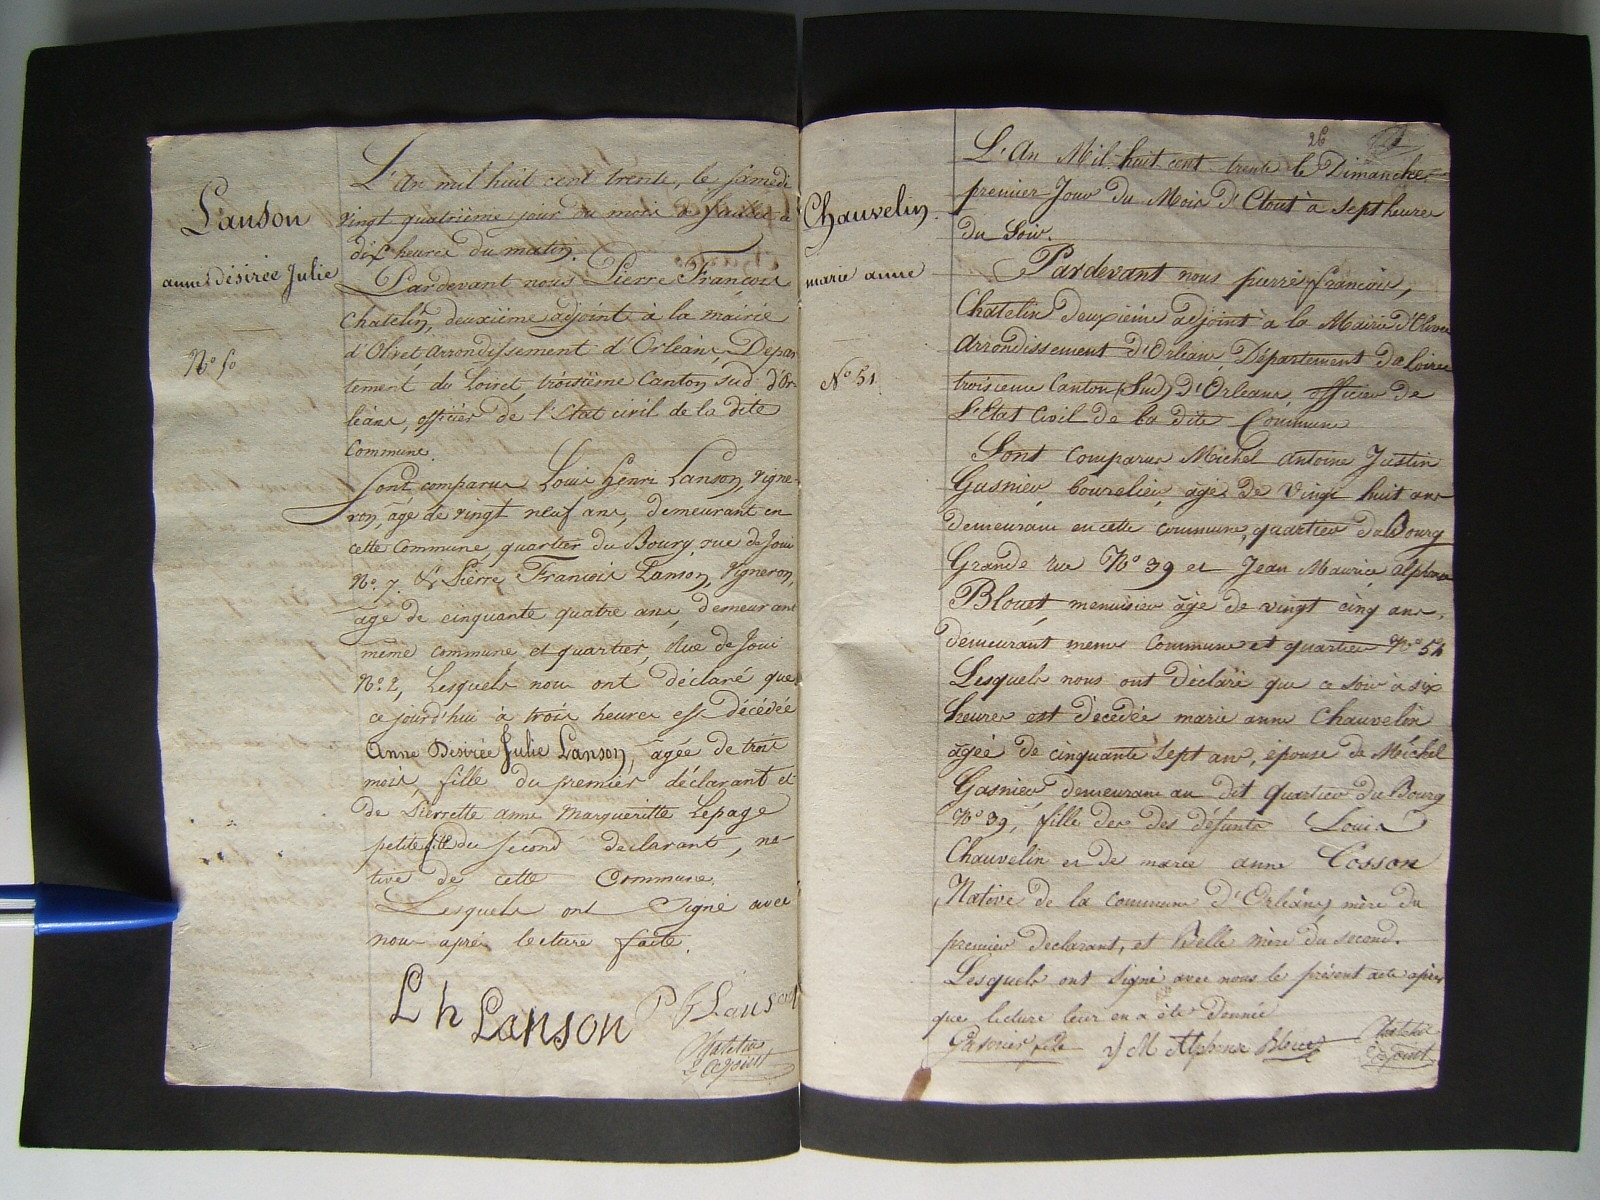 Lanson
anne désirée Julie
N.o 50
L'An mil huit cent trente, le samedi
vingt quatrième jour du mois de juillet à
dix heures du matin.
Pardevant nous Pierre François
Chatelin, deuxième adjoint à la mairie
d'Olivet arrondissement d'Orléans, Depar
tement du Loiret, troisième Canton sud d'Or
léans, officier de l'Etat civil de la dite
Commune.
Sont comparus Louis henri Lanson, vigne-
ron, âgé de vingt neuf ans, demeurant en
cette Commune, quartier du Bourg, rue de Joui
N.o 7. & Pierre François Lanson, vigneron,
âgé de cinquante quatre ans, demeurant
même commune et quartier, Rue de Joui
N.o 2, Lesquels nous ont déclaré que
ce jourd'hui à trois heures est décédée
Anne Désirée Julie Lanson, âgée de trois
mois, fille du premier déclarant et
de Pierrette anne Margueritte Lepage
petite fille du second declarant, na-
tive de cette Commune.
Lesquels ont Signé avec
nous après lecture faite.
L h Lanson P F Lanson
Chatelin
adjoint
26
Chauvelin.
marie anne
N.o 51.
L'An Mil huit cent trente le Dimanche
premier Jour du Mois d'Août à Sept heures
du Soir.
Pardevant nous pierre françois,
Chatelin deuxième adjoint à la Mairie d'Olivet
Arrondissement d'Orléans Département du Loiret
troisieme Canton (Sud) d'Orléans, officier de
L'Etat Civil de la dite Commune
Sont Comparus Michel antoine Justin
Gasnier, bourelier, âgé de vingt huit ans
demeurant en cette commune, quartier du Bourg
Grande rue N.o 39 et Jean Maurice alphonse
Blouet menuisier âgé de vingt cinq ans,
demeurant meme Commune et quartier N.o 54
Lesquels nous ont Déclaré que ce soir à six
heures est décédée marie anne Chauvelin
âgée de cinquante Sept ans, épouse de Michel
Gasnier demeurant au dit quartier du Bourg
N.o 39, fille des des défunts Louis
Chauvelin et de marie anne Cosson
Native de la commune d'Orléans, mère du
premier declarant, et Belle mère du second.
Lesquels ont Signé avec nous le présent acte après
que lecture leur en a été donnée
Gasnier fils J M Alphonse Blouet Chatelin
adjoint